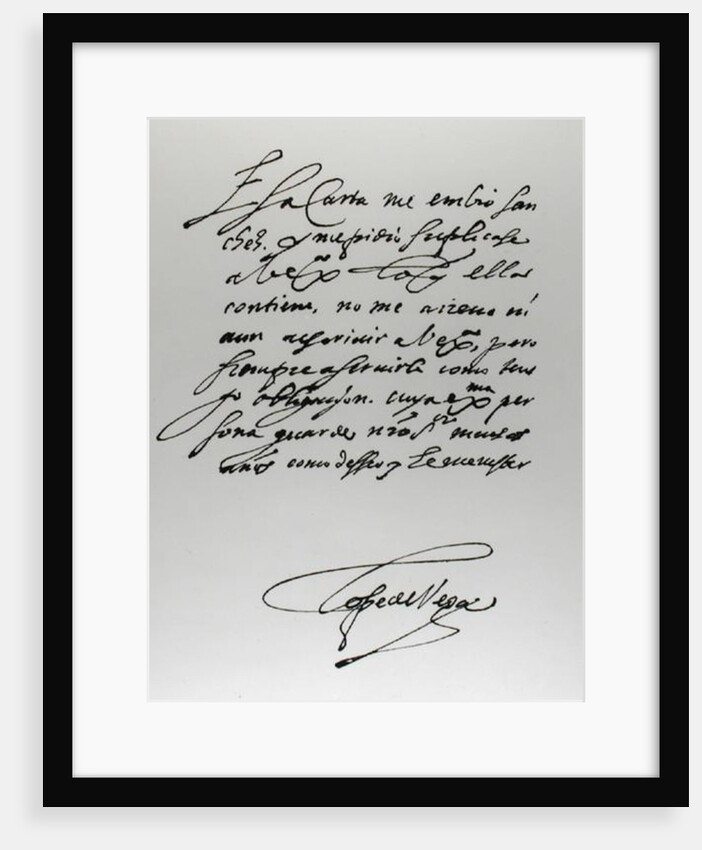 Esta Carta me embio san
chez. y me pidio suplicase
a V ex.ª lo q en ella se
contiene, no me atreuo ni
aun a escriuir a V exª, pero
siempre a seruirle como ten
go obligaçion. cuya exma per
sona guarde nro Sr muchos
años como desseo y he menester
Lope de Vega